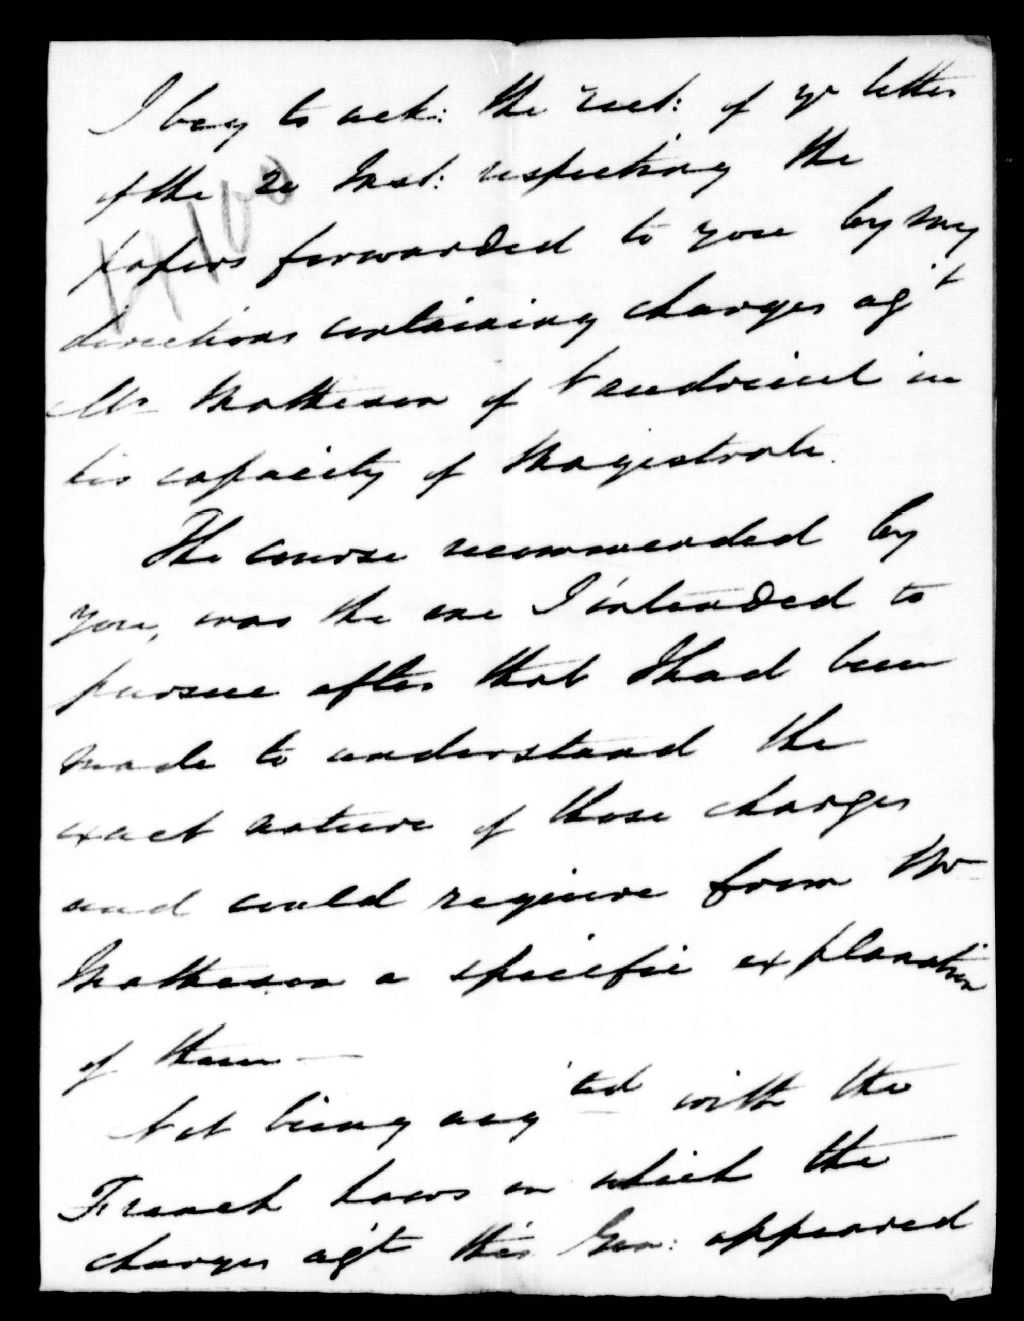 I beg to ack: the rect: of yr letter
of the 20 Inst: respecting the
papers forwarded to you by my
directions containing charges ag't
Mr Matheson of Vaudreuil in
his capacity of Magistrate.
The course recommended by
you, was the one I intended to
pursue after that I had been
made to understand the
exact nature of those charges
and could require from Mr
Matheson a specific explanation
of them —
Not being acq'ted with the
French Laws on which the
charges ag't this Gen: appeared